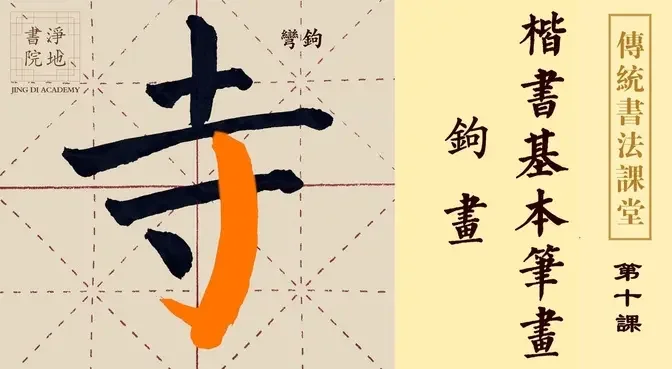 傳統書法課堂
第十課
楷書基本筆畫
鉤畫
彎鉤
寺
淨地
書院
JING DI ACADEMY